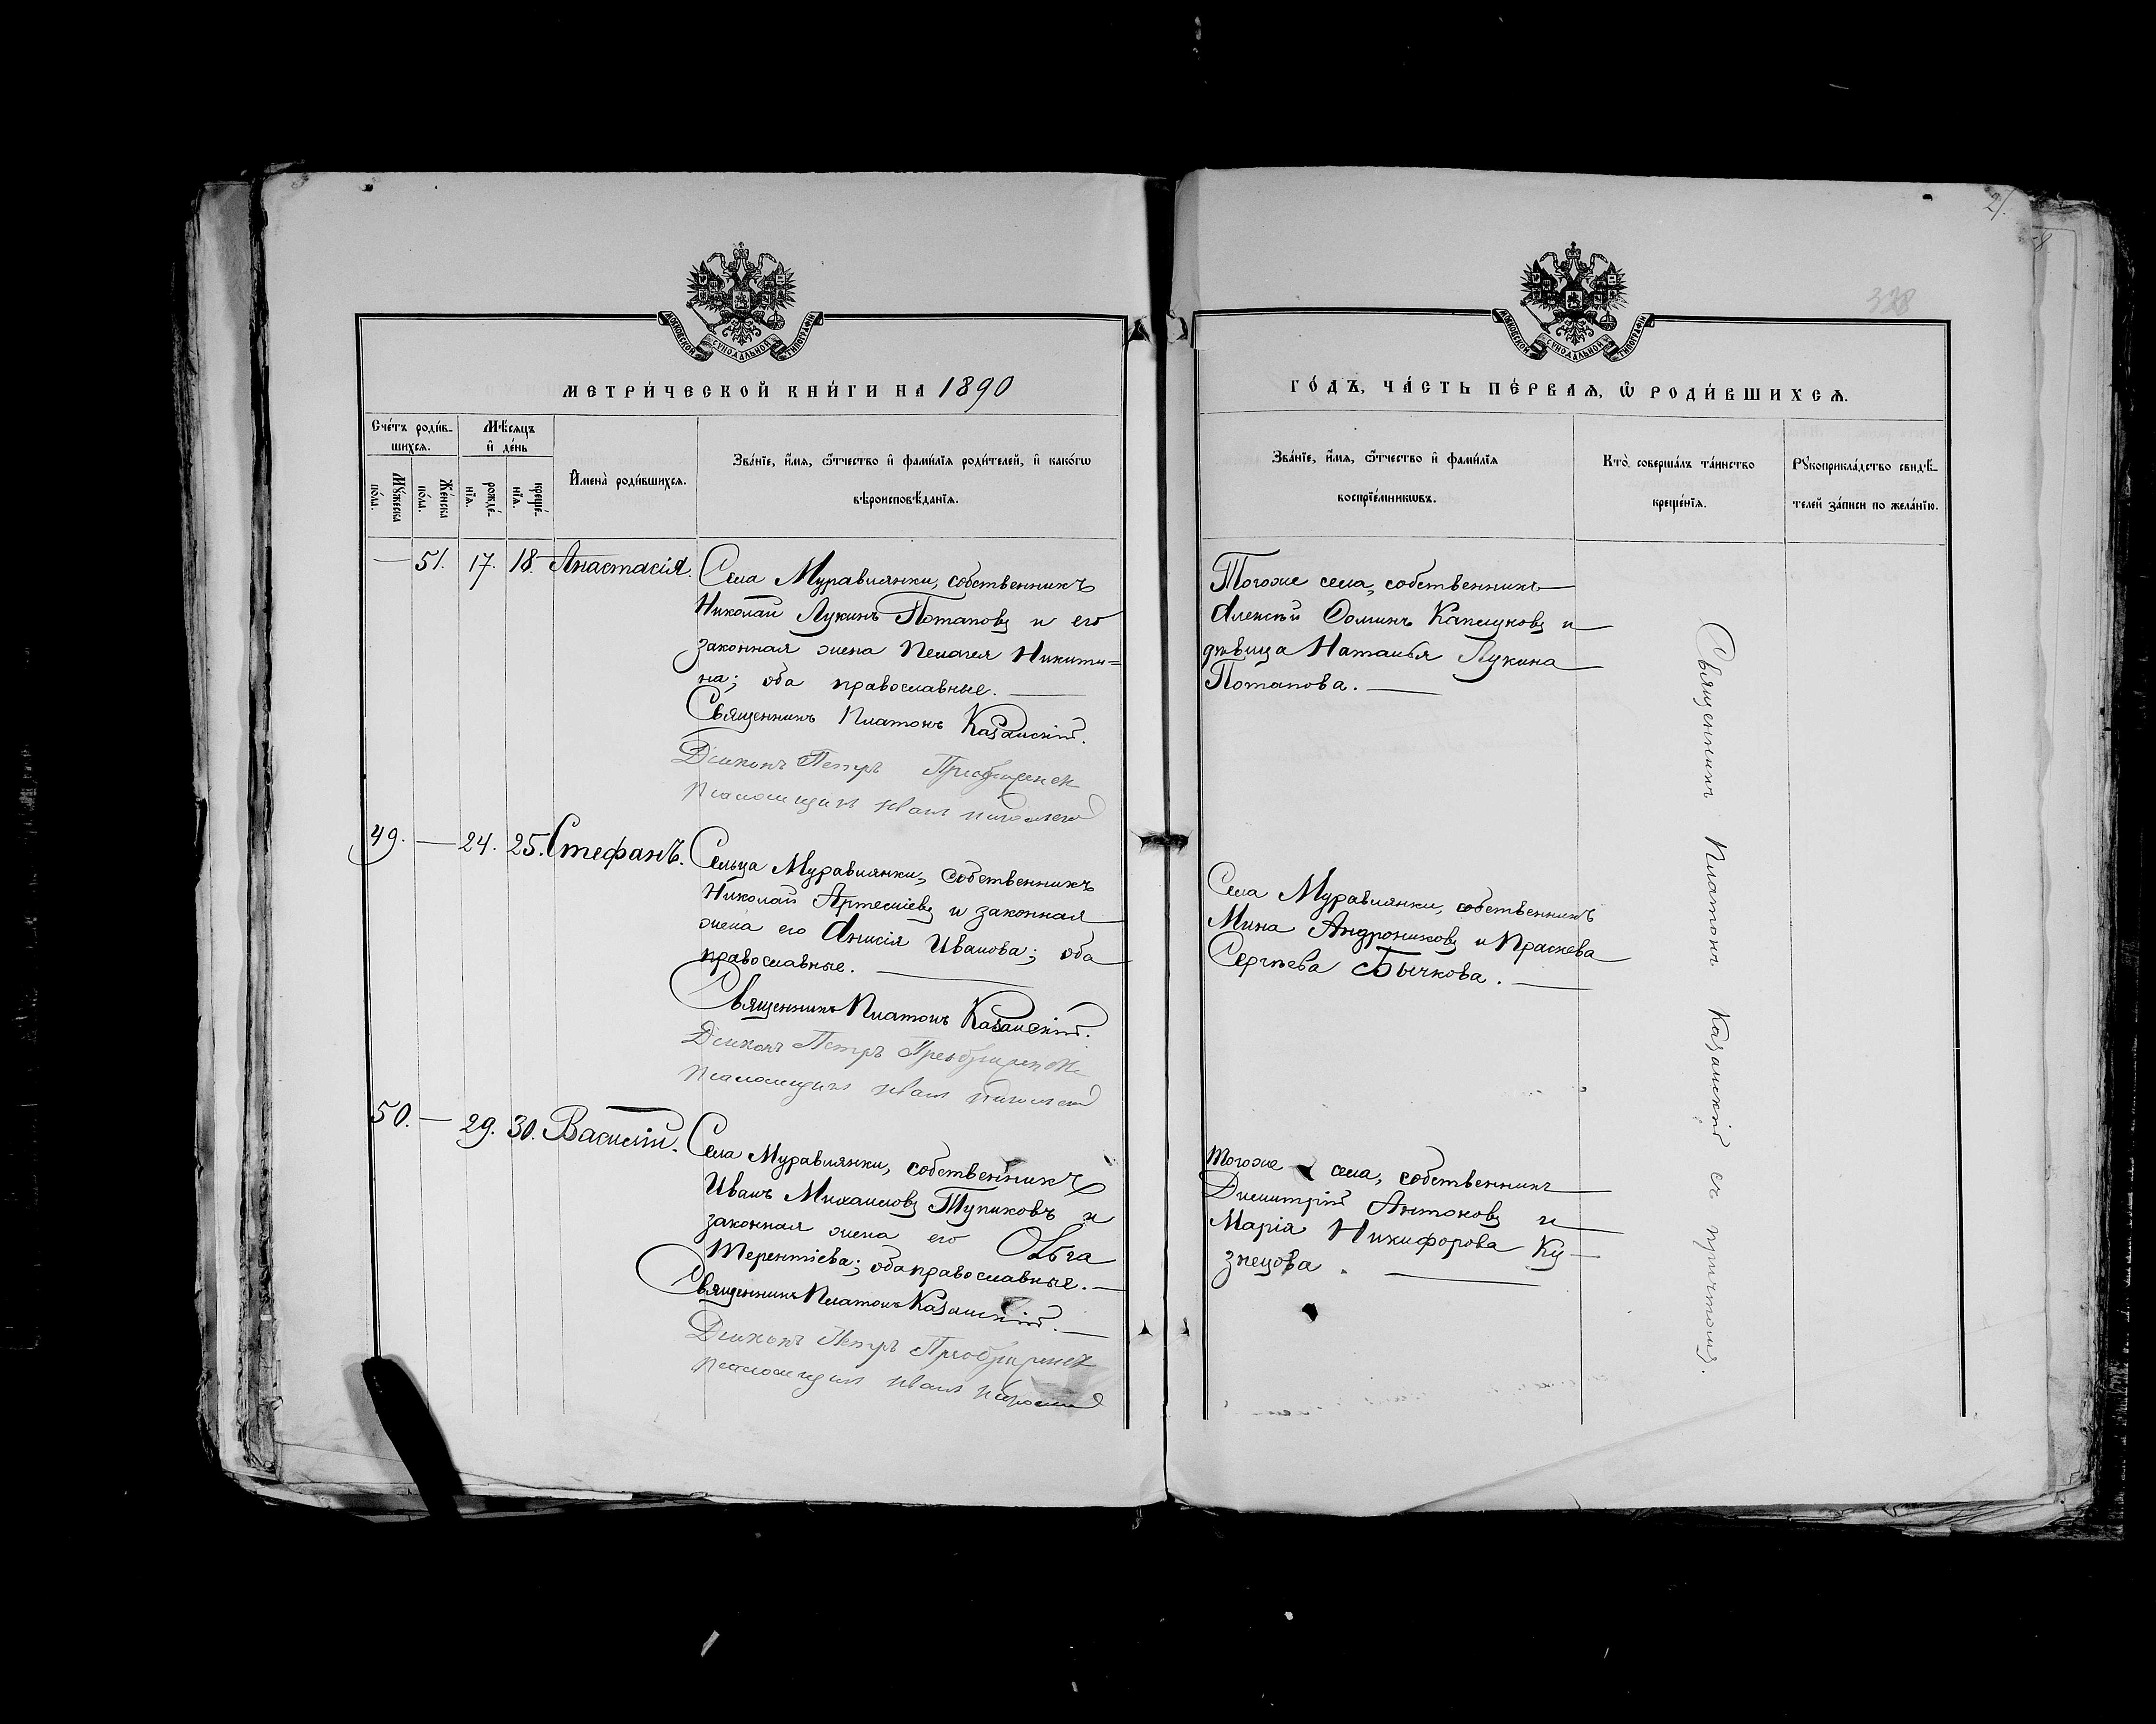 21.
338
МОСКОВСКОЙ СѴНОДАЛЬНОЙ ТИПОГРАФІИ
МЕТРИ́ЧЕСКОЙ КНИ́ГИ НА 1890
Сче́тъ роди́в-
шихсѧ.
Мѣ́сѧцъ
и҆ де́нь
Мꙋ́жеска
по́ла.
Же́нска
по́ла.
рожде́-
нїѧ.
креще́-
нїѧ.
И҆мена̀ роди́вшихсѧ.
Зва́нїе, и҆́мѧ, ѻ҆́тчество и҆ фами́лїѧ роди́телей, и҆ како́гѡ
вѣроисповѣ́данїѧ.
— 51. 17. 18. Анастасія.
Села Муравлянки, собственникъ
Николай Лукинъ Потаповъ и его
законная жена Пелагея Никити=
на; оба православные. —
Священникъ Платонъ Казанскій.
Діаконъ Петръ Преображенск
Псаломщикъ Иванъ
49. — 24. 25. Стефанъ.
Сельца Муравлянки, собственникъ
Николай Артемьевъ и законная
жена его Анисія Иванова; оба
православные. —
Священникъ Платонъ Казанскій.
Діаконъ Петръ Преображенск
Псаломщикъ Иванъ
50. — 29. 30. Василій.
Села Муравлянки, собственникъ
Иванъ Михаиловъ Тупиковъ и
законная жена его Ольга
Терентіева; оба православные. —
Священникъ Платонъ Казанскій. —
Діаконъ Петръ Преображенск
Псаломщикъ Иванъ
МОСКОВСКОЙ СѴНОДАЛЬНОЙ ТИПОГРАФІИ
ГО́ДЪ, ЧА́СТЬ ПЕ́РВАѦ, Ѡ҆ РОДИ́ВШИХСѦ.
Зва́нїе, и҆́мѧ, ѻ҆́тчество и҆ фами́лїѧ
воспрїе́мникѡвъ.
Кто̀ соверша́лъ та́инство
креще́нїѧ.
Рꙋкоприкла́дство свидѣ́-
телей за́писи по жела́нїю.
Тогоже села, собственникъ
Алексѣй Ѳоминъ Капмуковъ и
дѣвица Наталья Лукина
Потапова. —
Села Муравлянки, собственникъ
Мина Андрониковъ и Праскева
Сергѣева Бычкова. —
Тогоже села, собственникъ
Димитрій Антоновъ и
Марія Никифорова Ку—
знецова. —
Священникъ Платонъ Казанскій съ причтомъ.